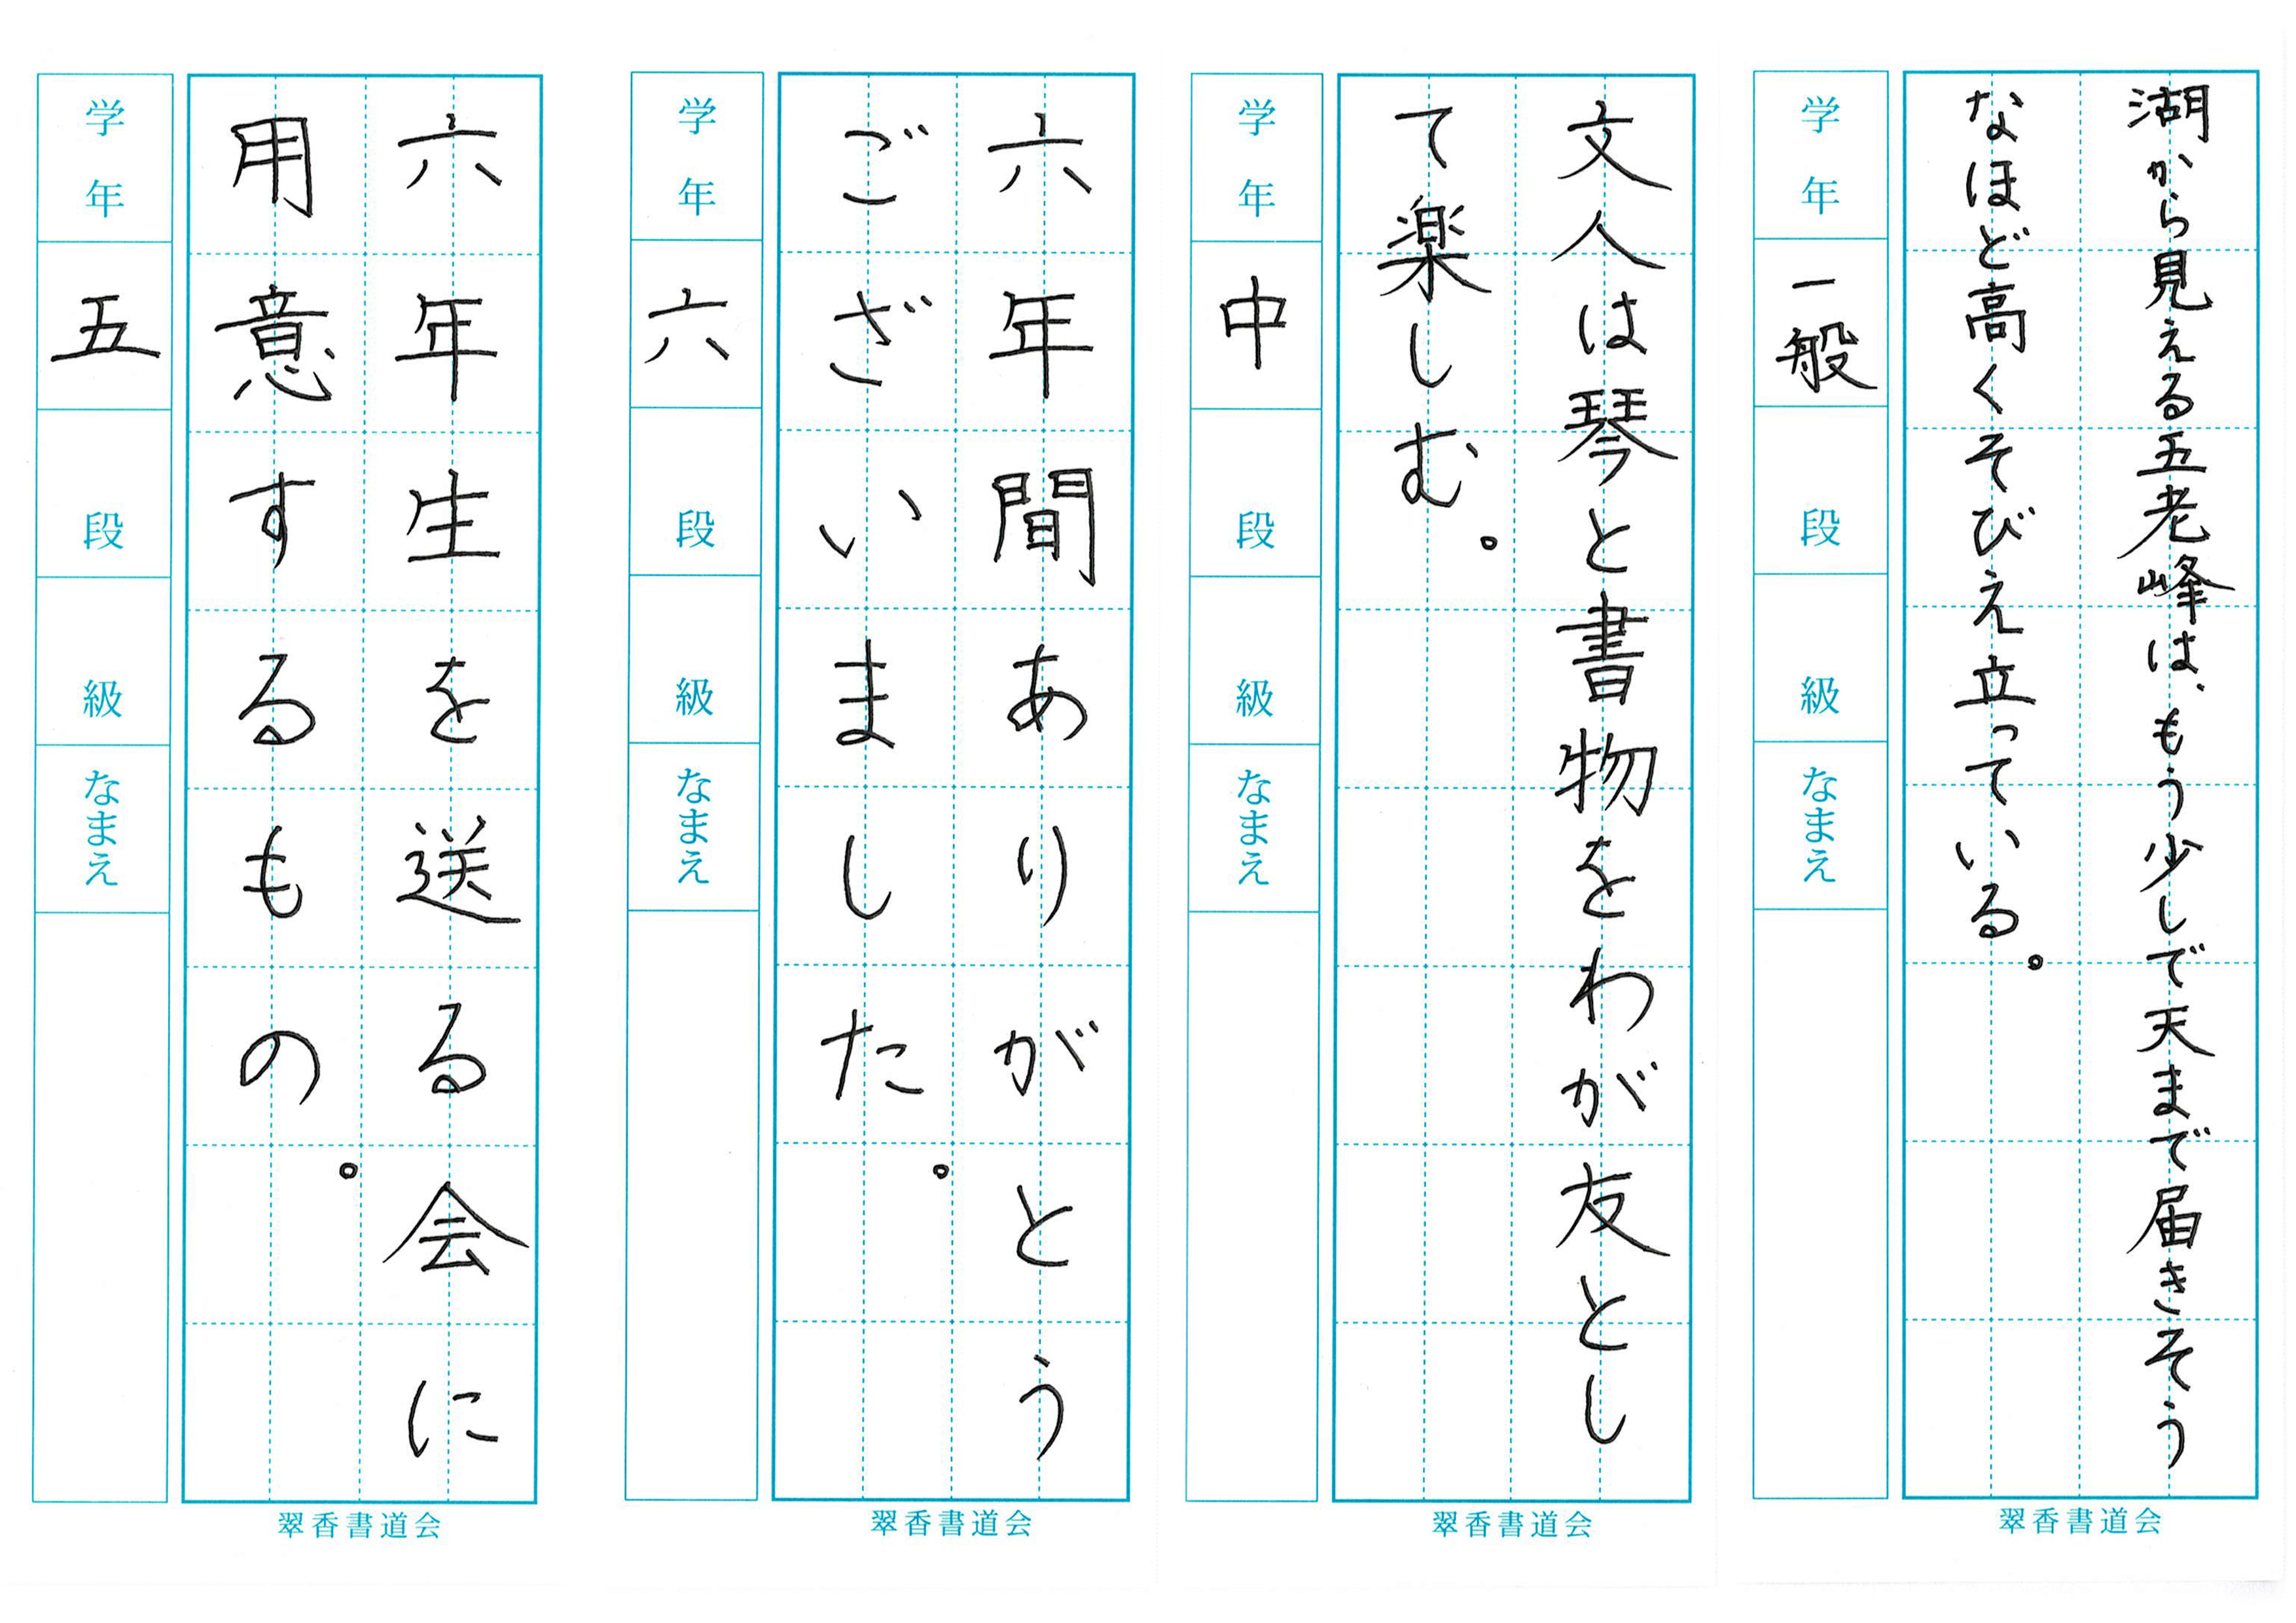 湖から見える五老峰は、もう少しで天まで届きそう
なほど高くそびえ立っている。
学年
一般
段
級
なまえ
翠香書道会
文人は琴と書物をわが友とし
て楽しむ。
学年
中
段
級
なまえ
翠香書道会
六年間ありがとう
ございました。
学年
六
段
級
なまえ
翠香書道会
六年生を送る会に
用意するもの。
学年
五
段
級
なまえ
翠香書道会